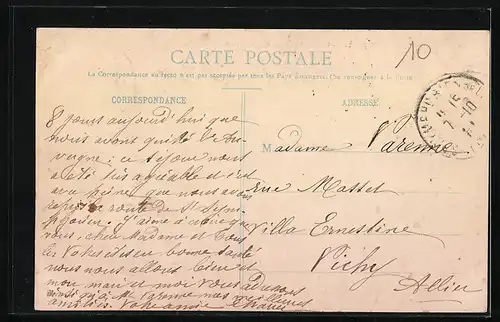 10
CARTE POSTALE
La Correspondance au recto n'est pas acceptée par tous les Pays étrangers (Se renseigner à la Poste
CORRESPONDANCE
ADRESSE
8 jours aujourd'hui que
nous avons quitté l'Au
vergne; ce séjour nous
a été très agréable et c'est
avec peine que nous avons
repris la route de St
J'aime à croire que
vous, chère Madame et tous
les vôtres êtes en bonne santé
nous nous allons bien et
mon mari et moi vous adressons
ainsi qu'à Mr Varenne nos meilleures
amitiés. Votre amie
Madame Varenne
rue Masset
Villa Ernestine
Vichy
Allier